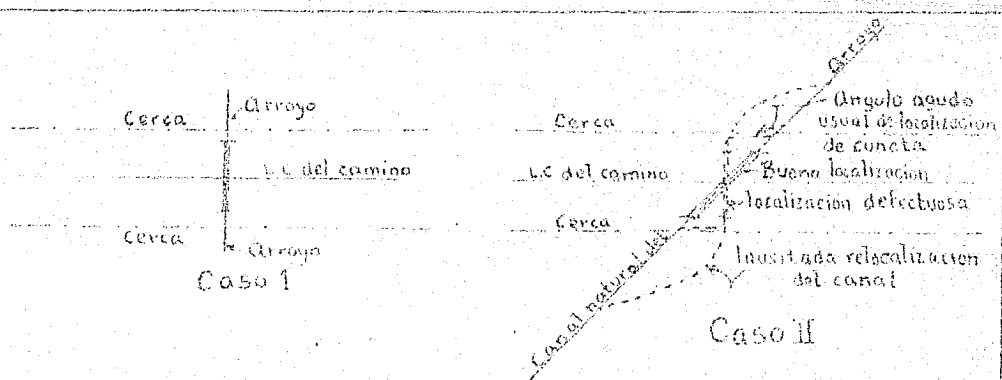 Arroyo
Cerca
L.C del camino
Cerca
Arroyo
Caso I
Cerca
L.C del camino
Cerca
Canal natural del Arroyo
Angulo agudo
usual de localización
de cuneta
Buena localización
localización defectuosa
Inusitada relocalización
del canal
Caso II